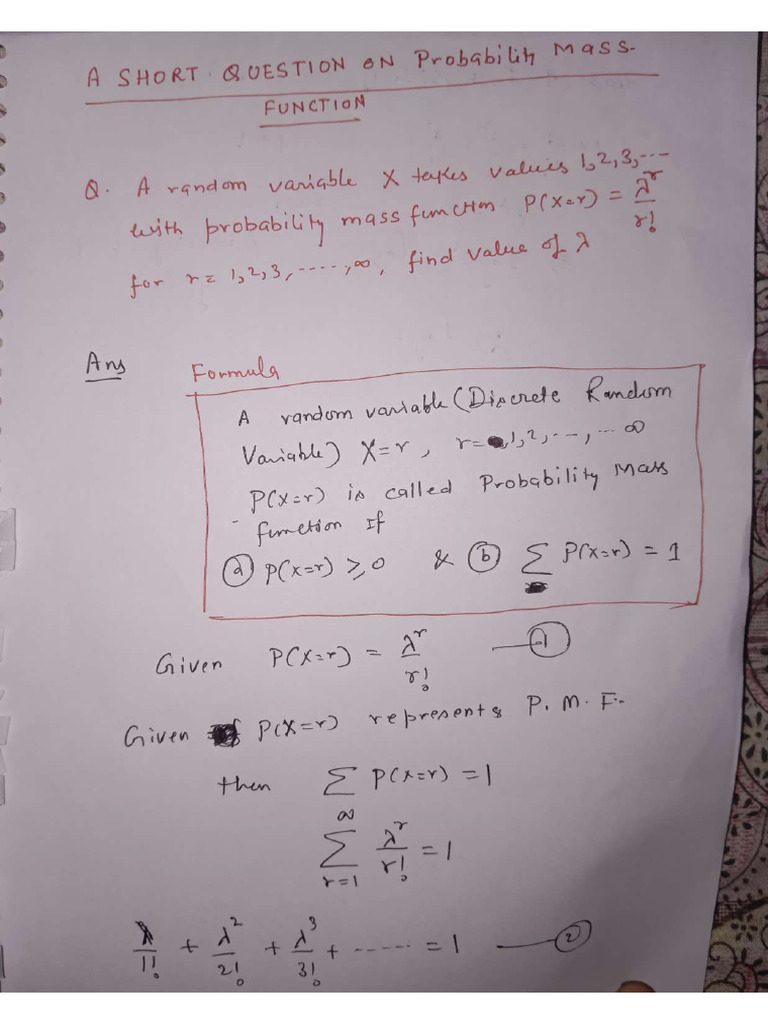 A SHORT QUESTION ON Probability Mass
FUNCTION
Q. A random variable X takes values 1,2,3,...
with probability mass function P(X=r) = λ^r/r!
for r = 1,2,3,.....,∞, find value of λ
Ans
Formula
A random variable (Discrete Random
Variable) X=r, r=1,2,..-,...∞
P(X=r) is called Probability Mass
function If
(a) P(X=r) ≥ 0 & (b) Σ P(X=r) = 1
Given P(X=r) = λ^r/r! —(1)
Given P(X=r) represents P.M.F.
then Σ P(X=r) = 1
∞
Σ λ^r/r! = 1
r=1
λ/1! + λ²/2! + λ³/3! + ...... = 1 —(2)